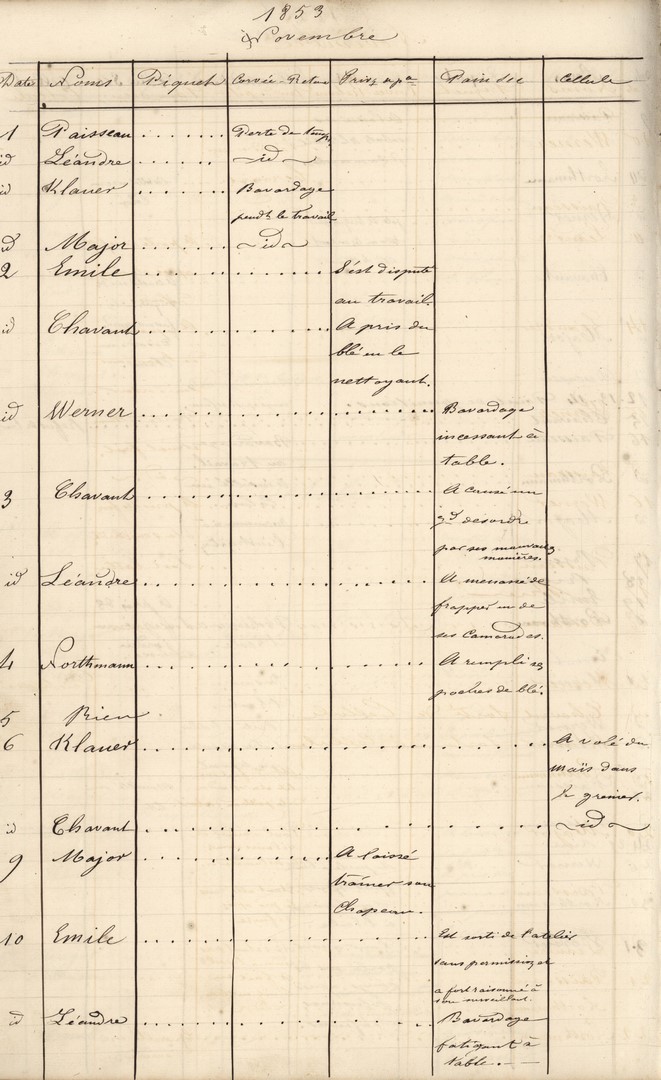 1853
Novembre
Date Noms Piquet Corvée - Retnue Priv. Pain sec Cellule
1 Paisseau Perte de temps
id Léandre id
id Klauer Bavardage
pendt le travail
id Major id
2 Emile S'est disputé
au travail.
id Chavant A pris du
blé en le
nettoyant.
id Werner Bavardage
incessant à
table.
3 Chavant A causé un
gd desordre
par ses mauvaises
manières.
id Léandre A menacé de
frapper un de
ses Camarades.
4 Northmann A rempli ses
poches de blé.
5 Rien
6 Klauer A volé du
maïs dans
le grenier.
id Chavant id
9 Major A laissé
traîner son
Chapeau.
10 Emile Est sorti de l'atelier
sans permission et
a fort raisonné à
son surveillant.
id Léandre Bavardage
fatigant à
table.